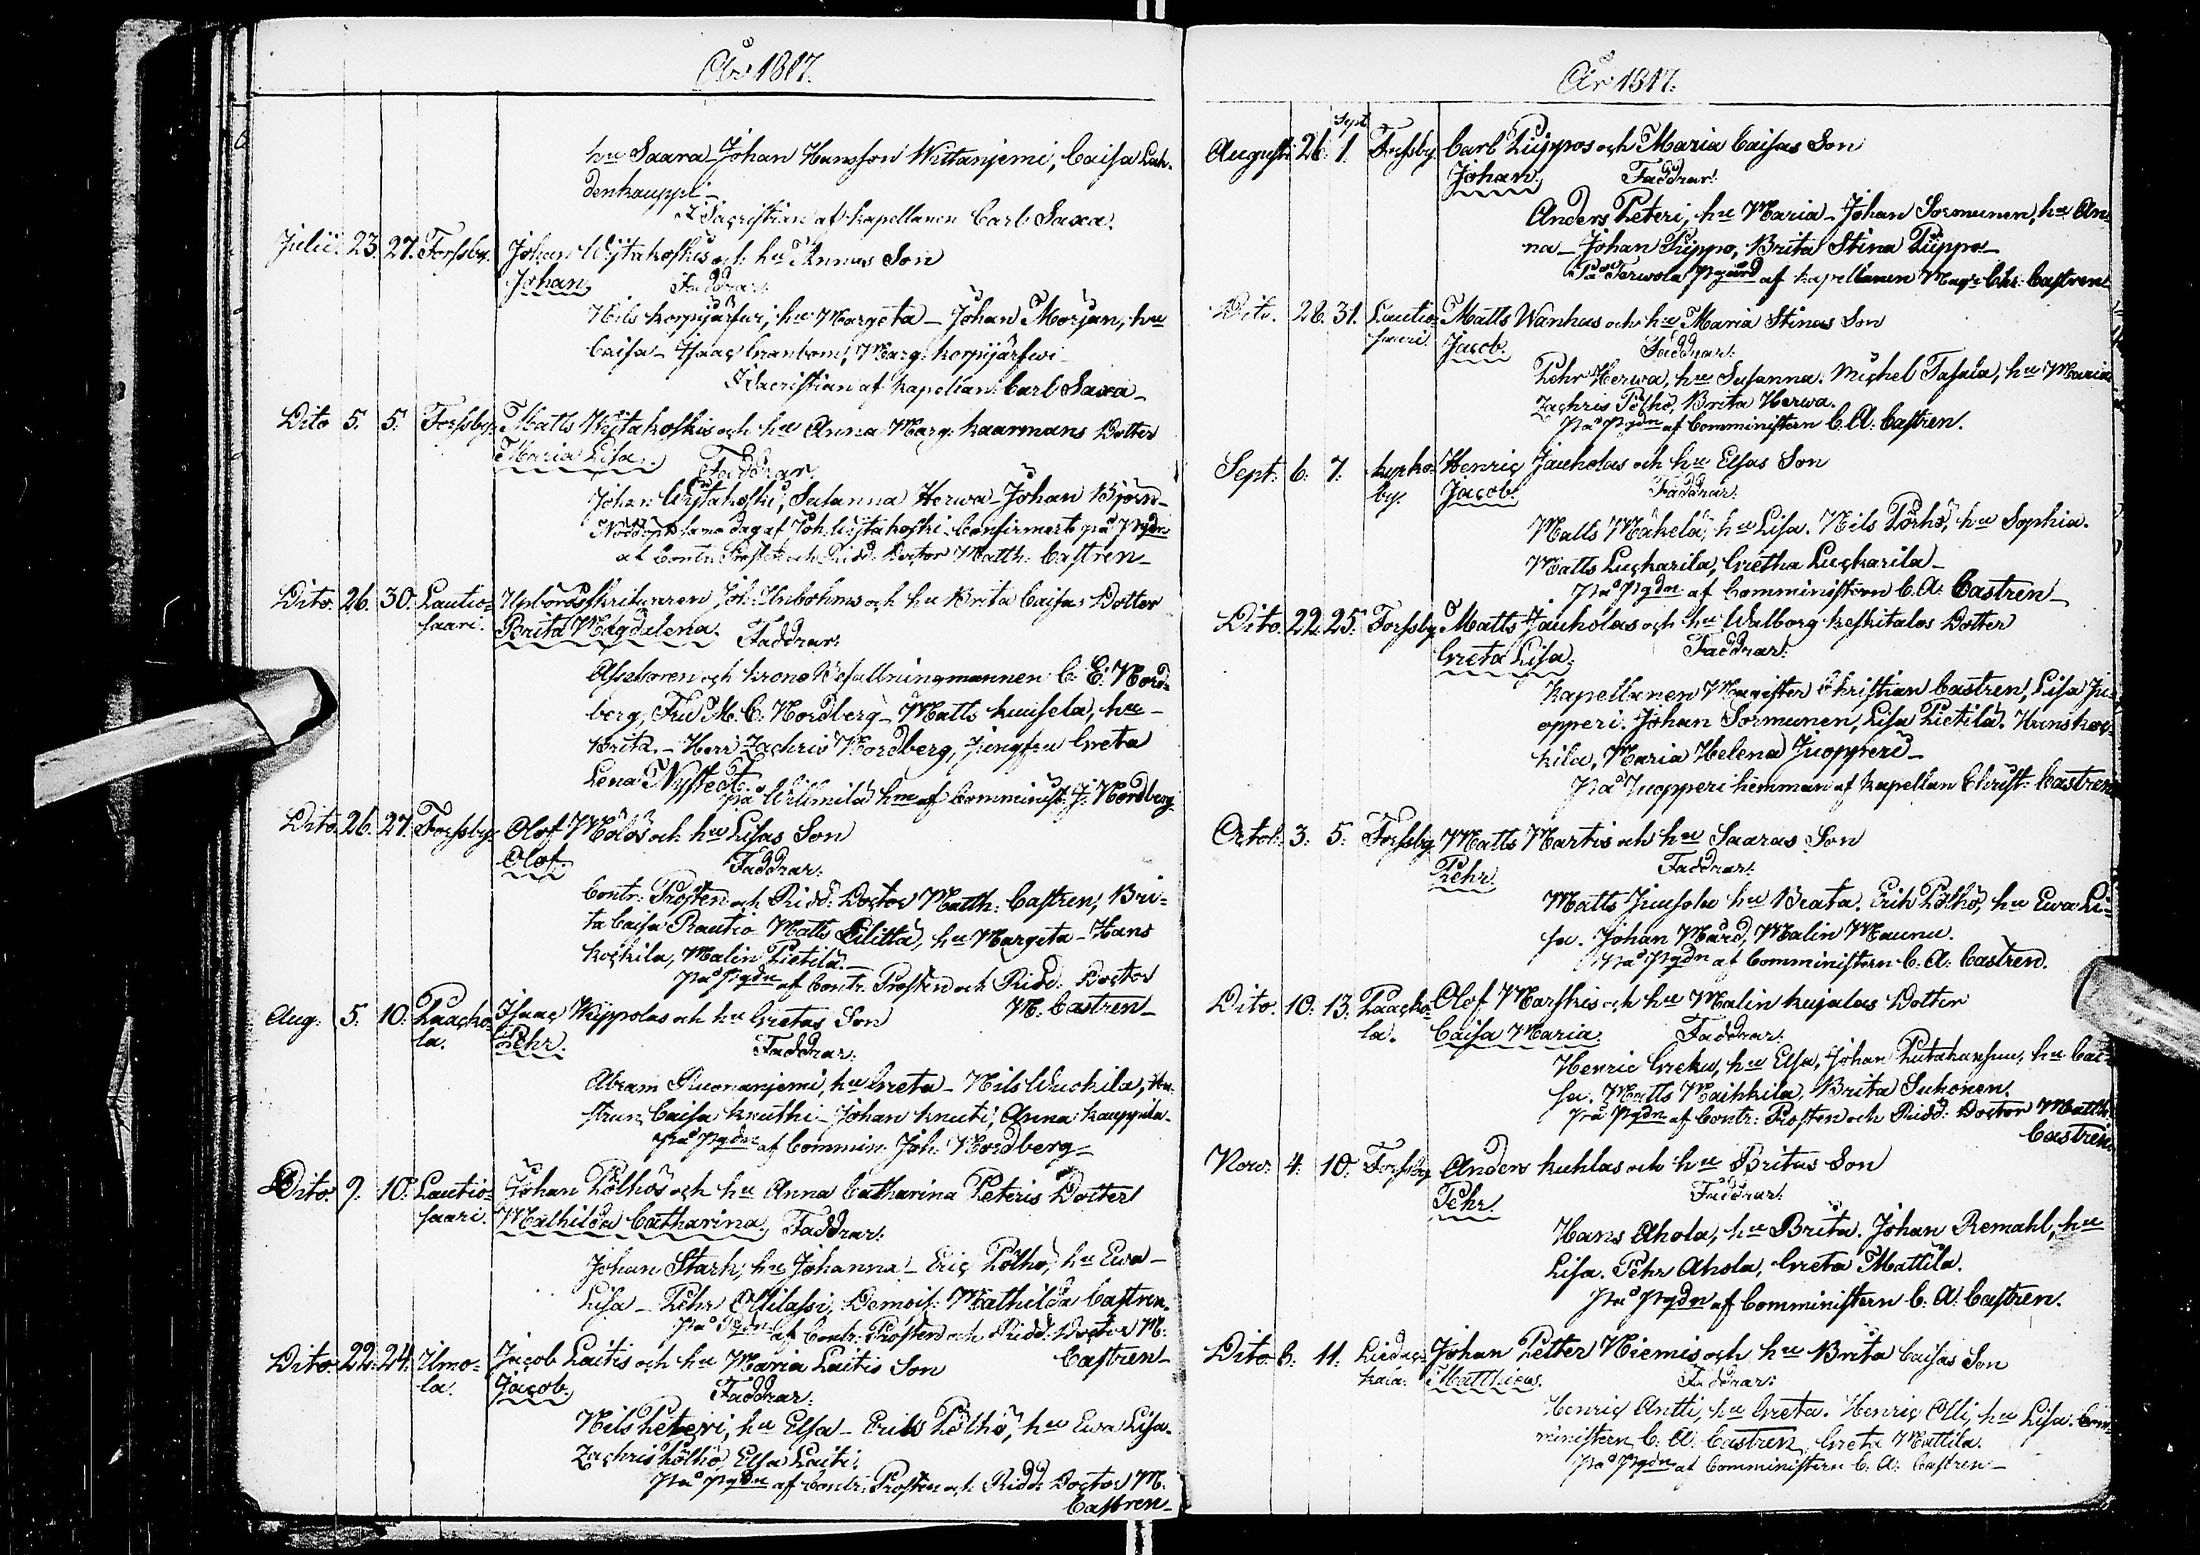 År 1817.
hu Saara - Johan Hansson Wittaniemi, Caisa Lah-
denkauppi -
I Sacristian af Kapellanen Carl Saxa.
Julii. 23. 27. Forssby. Johan Wijtakoskis och hu Annas Son
Johan. Faddrar:
Nils Korpijärfwi, hu Margeta - Johan Morjan, hu
Caisa - Isaac Granbom, Marg: Korpijärfwi -
I Sacristian af Kapellan: Carl Saxa -
Dito 5. 5. Forssby. Matts Wijtakoskis och hu Anna Marg: Kaarmans Dotter
Maria Lisa. Faddrar.
Johan Wijtakoski, Susanna Herwa - Johan Björn -
Nöddöpt sama dag af Joh: Wijtakoski - Confirmert på Pgdn
af Contr: Prosten och Ridd: Doctor Matth: Castren -
Dito. 26. 30. Lautio- Upbördsskrifwaren Joh: Unbohms och hu Brita Caisas Dotter
saari. Brita Magdalena. Faddrar:
Assessoren och Krono Befallningsmannen C. E. Nord-
berg, Fru M. C. Nordberg - Matts Kuusela, hu -
Brita. - Herr Zachris Nordberg, Jungfru Greta
Lena Nystedt
på Willmilä hmn af Comminist: J: Nordberg
Dito. 26. 27. Forssby. Olof Mölös och hu Lisas Son
Olof. Faddrar:
Contr: Prosten och Ridd: Doctor Matth: Castren, Bri-
ta Caisa Rautio Matts Lilitta, hu Margeta - Hans
Kockila, Malin Pietilä. -
På Pgdn af Contr: Prosten och Ridd: Doctor
M. Castren -
Aug: 5. 10. Paacko- Isaac Kippolas och hu Gretas Son
la. Pehr. Faddrar:
Abram Ruonaniemi, hu Greta - Nils Wuokila, Hu-
strun Caisa Knuthi - Johan Knuti, Anna Kauppila.
På Pgdn af Commin: Joh: Nordberg -
Dito. 9. 10. Lautio- Johan Pölhös och hu Anna Catharina Peteris Dotter
saari. Mathilda Catharina. Faddrar:
Johan Stark, hu Johanna - Eric Pölhö, hu Ewa -
Lisa - Pehr Ollilassi, Demois: Mathilda Castren.
På Pgdn af Contr: Prosten och Ridd: Doctor M.
Castren -
Dito. 22. 24. Ilmo- Jacob Laitis och hu Maria Laitis Son
la. Jacob. Faddrar:
Nils Peteri, hu Elsa - Eriks Pölhö, hu Ewa Lisa.
Zachris Pölhö, Elsa Laiti.
På Pgdn af Contr: Prosten och Ridd: Doctor M.
Castren -
År 1817.
Sept
Augusti 26. 1. Forssby. Carl Puppos och Maria Caisas Son
Johan. Faddrar:
Anders Peteri, hu Maria - Johan Sormunen, hu An-
na - Johan Puppo, Brita Stina Puppo -
På Terwola Pgård af Kapellanen Magr Chr: Castren
Dito. 28. 31. Lautio- Matts Wanhas och hu Maria Stinas Son
saari. Jacob. Faddrar:
Pehr Herwa, hu Susanna. Michel Tasala, hu Maria
Zachris Pölhö, Brita Herwa.
På Pgdn af Comministern C. A: Castren.
Sept: 6. 7. Kyrko- Henric Jauholas och hu Elsas Son
by. Jacob. Faddrar:
Matts Mäkelä, hu Lisa. Nils Pörhö, hu Sophia.
Matts Luckarila, Gretha Luckarila -
På Pgdn af Comministern C. A: Castren -
Dito 22. 25. Forssby. Matts Jauholas och hu Walborg Keskitalos Dotter
Greta Lisa. Faddrar:
Kapellanen Magister Christian Castren, Lisa Ju-
opperi. Johan Sormunen, Lisa Pietilä. Hans Koc-
kila, Maria Helena Juopperi -
På Juopperi hemman af Kapellan Christ: Castren
Octob: 3. 5. Forssby. Matts Martis och hu Saaras Son
Pehr. Faddrar:
Matts Juusola hu Beata. Erik Pölhö, hu Ewa Li-
sa. Johan Mård, Malin Maunu.
På Pgdn af Comministern C. A: Castren.
Dito. 10. 13. Paacko- Olof Marskis och hu Malin Kujalas Dotter
la. Caisa Maria. Faddrar:
Henric Greku, hu Elsa, Johan hu Cai-
sa. Matts Maikkila, Brita Suhonen.
På Pgdn af Contr: Prosten och Ridd: Doctor Matth:
Castren.
Now: 4. 10. Forssby Anders Kuhlas och hu Britas Son
Pehr. Faddrar:
Hans Ahola, hu Brita. Johan Remahl, hu
Lisa. Pehr Ahola, Greta Mattila.
På Pgdn af Comministern C. A: Castren.
Dito 6. 11. Liedac- Johan Petter Niemis och hu Brita Caisas Son
kala. Matthias. Faddrar:
Henric Antti, hu Greta. Henric Olli, hu Lisa. Com-
ministern C. A: Castren, Greta Mattila.
På Pgdn af Comministern C. A: Castren -